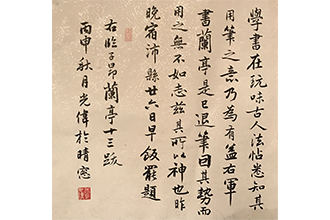 學書在玩味古人法帖悉知其
用筆之意乃為有益右軍
書蘭亭是已退筆因其勢而
用之無不如志茲其所以神也昨
晚宿沛縣廿六日早飯罷題
右臨子昂蘭亭十三跋
丙申秋月光偉於晴窗